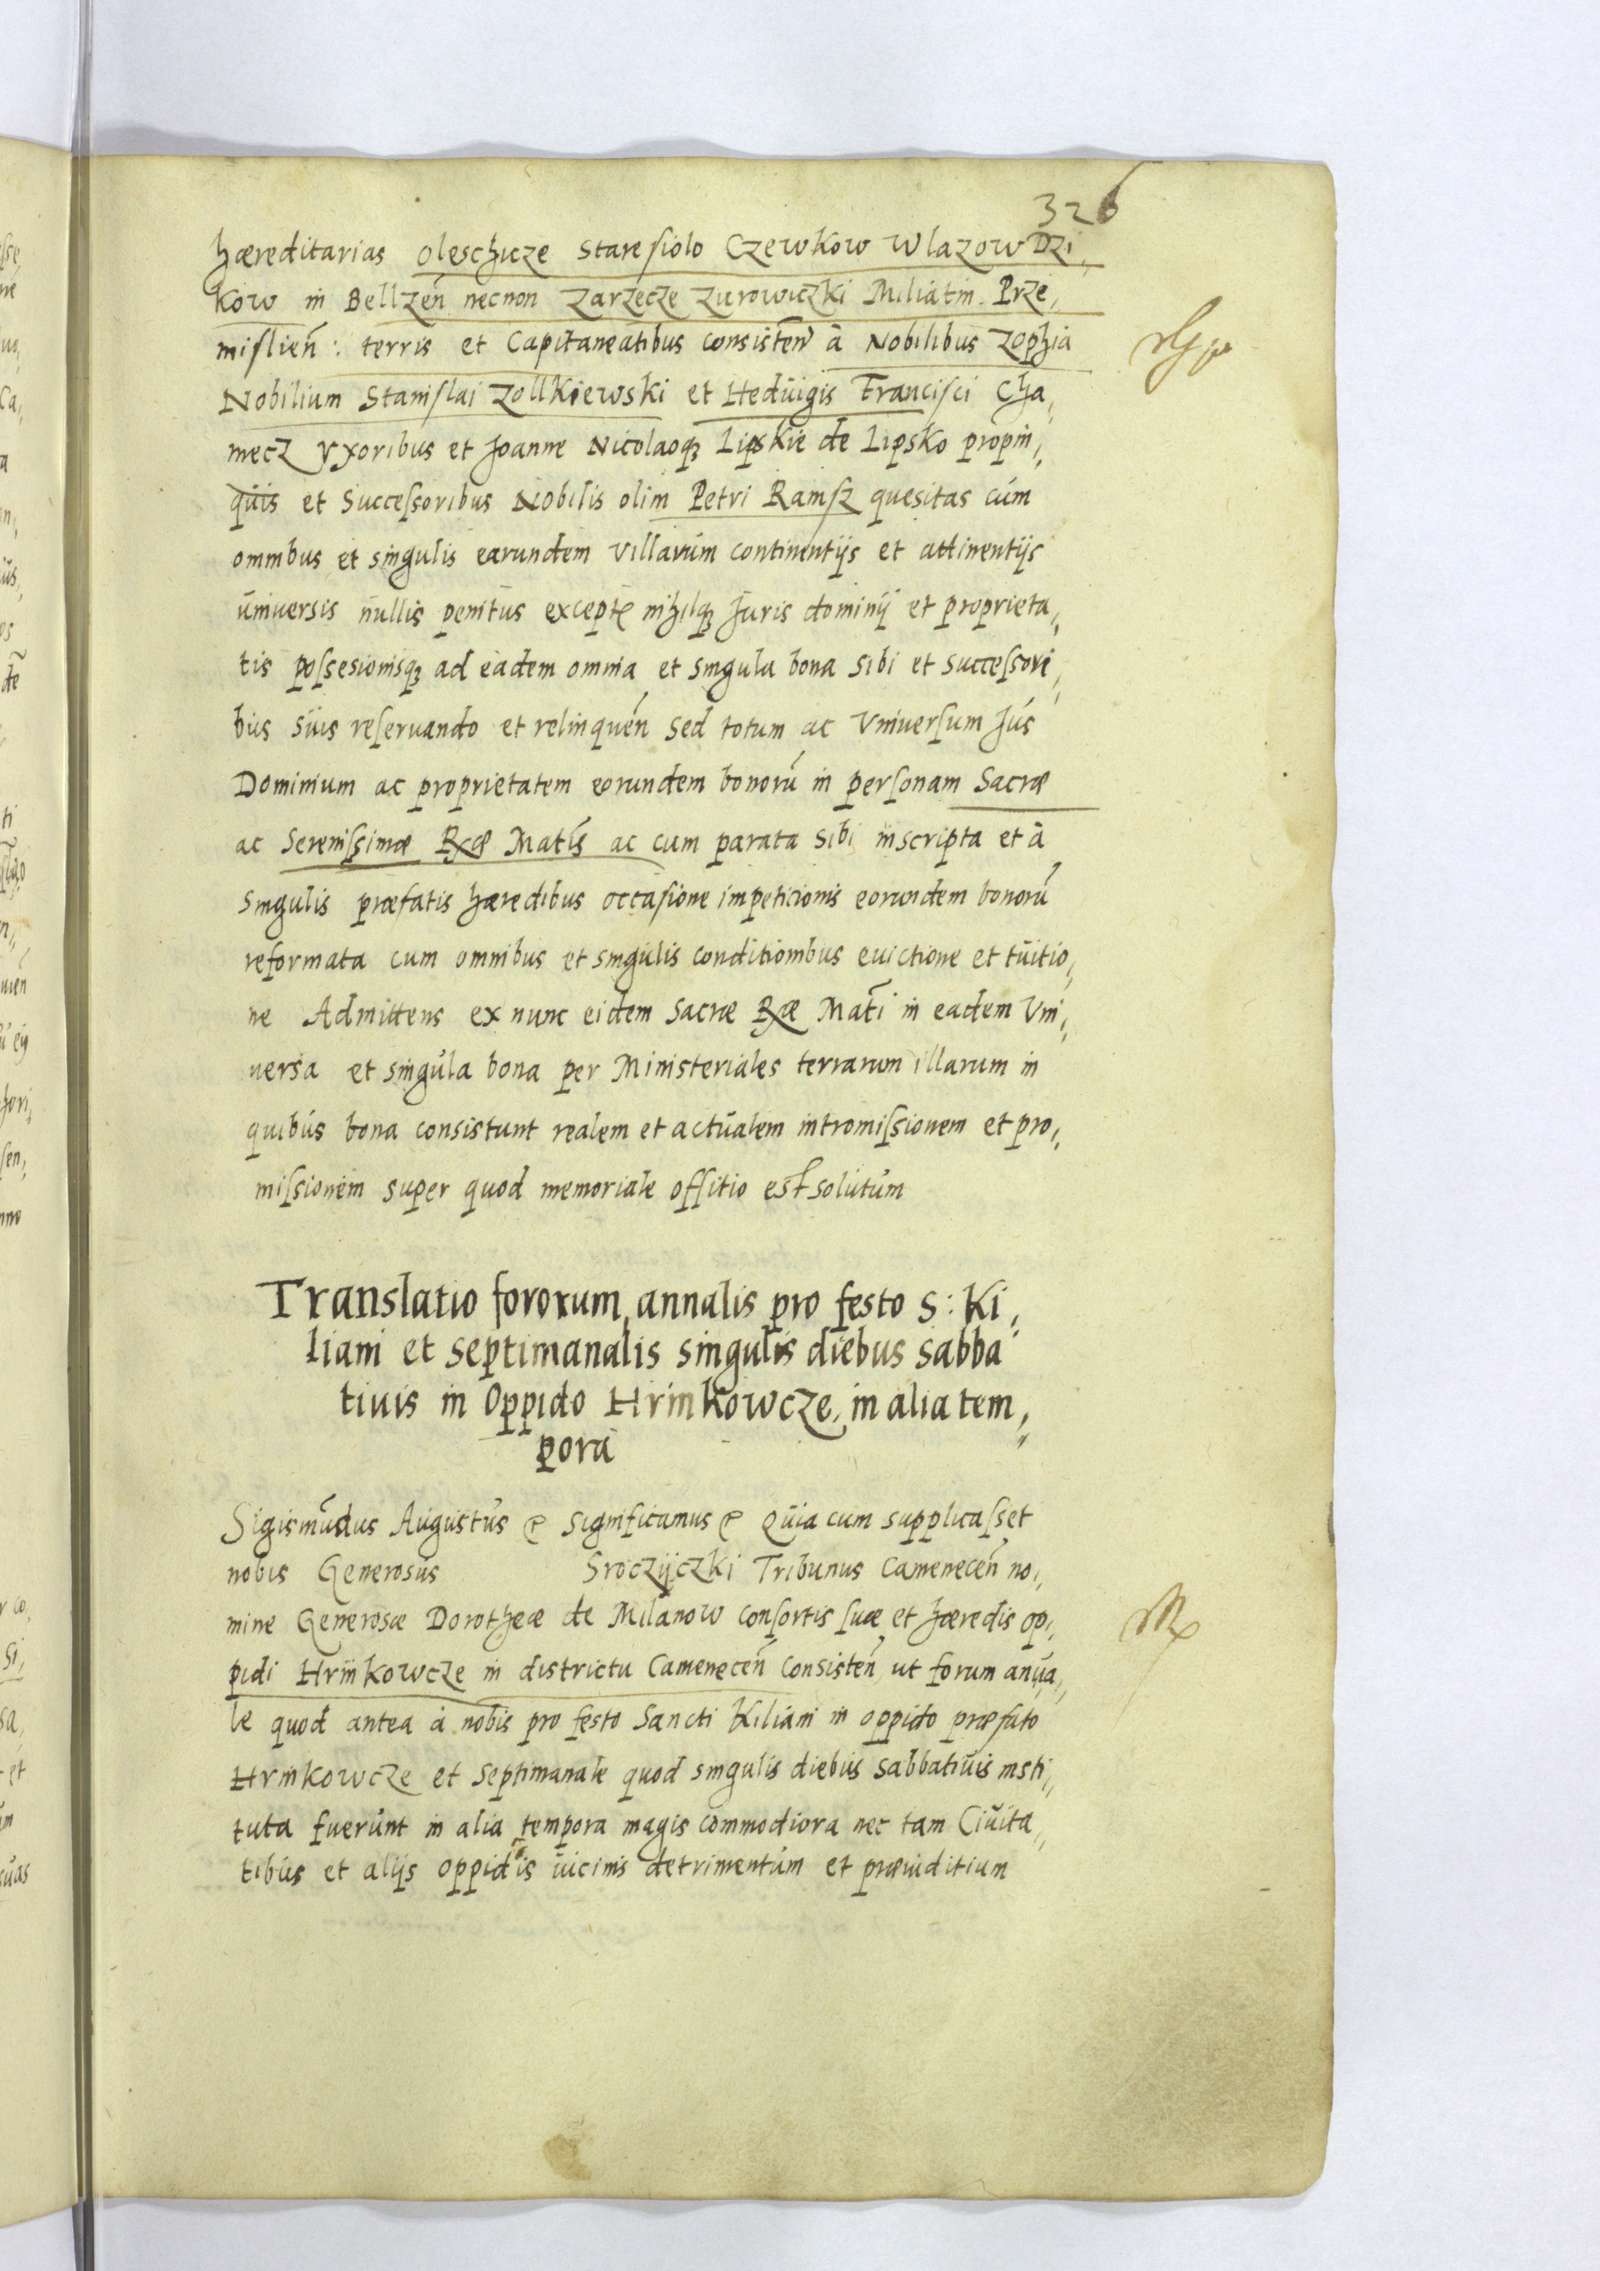 326
hæreditarias Oleschicze Staresiolo Czewkow Wlazow Dzi,
kow in Bellzeń necnon Zarzecze Zurowiczki Miliatin Prze,
mislień: terris et Capitaneatibus consisteń à Nobilibus Zophia
Nobilium Stanislai Zollkiewski et Hedüigis Francisci Cha,
mecz Vxoribus et Joanne Nicolaoqꝫ Lipskie de Lipsko propin,
qüis et Successoribus Nobilis olim Petri Ramsz quesitas cúm
omnibus et singulis earundem villarum continentijs et attinentijs
üniversis nüllis penitus except nihilqꝫ Juris dominij et proprieta,
tis possesionisqꝫ ad eadem omnia et singula bona sibi et successori,
bus süis reseruando et relinqueń sed totum ac Vniuersum Jus
Dominium ac proprietatem eorundem bonorū in personam Sacræ
ac Serenissimæ Rxæ Matis ac cum parata sibi inscripta et à
singulis præfatis hæredibus occasione impeticionis eorundem bonorū
reformata cum omnibus et singulis conditionibus euictione et tüitio,
ne Admittens ex nunc eidem Sacræ Rxæ Mati in eadem Vni,
uersa et singula bona per Ministeriales terrarum illarum in
quibus bona consistunt realem et actualem intromissionem et pro,
missionem super quod memoriale offitio est solutum
Translatio fororum annalis pro festo S: Ki,
liani et septimanalis singulis diebus sabba
tiuis in Oppido Hrinkowcze, in alia tem,
pora
Sigismūdus Augustus & Significamus & Quia cum supplicasset
nobis Generosus Sroczijczki Tribunus Cameneceń no,
mine Generosæ Dorotheæ de Milanow consortis suæ et hæredis op,
pidi Hrinkowcze in districtu Cameneceń Consisteń ut forum anua,
le quod antea à nobis pro festo Sancti Kiliani in oppido præfato
Hrinkowcze et Septimanale quod singulis diebus Sabbatiuis insti,
tuta fuerunt in alia tempora magis commodiora nec tam Ciuita,
tibus et alijs oppidis uicinis detrimentum et præiuditium